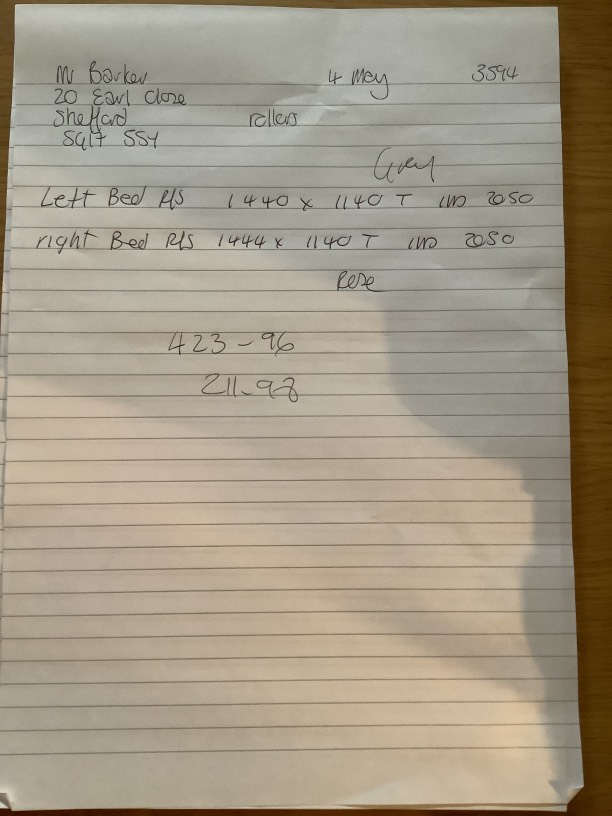 Mr Barker 4 May 3594
20 Earl Close
Shefford rollers
SG17 5SY
Grey
Left Bed R/S 1440 x 1140 T IND 2050
right Bed R/S 1444 x 1140 T IND 2050
423-96
211-98